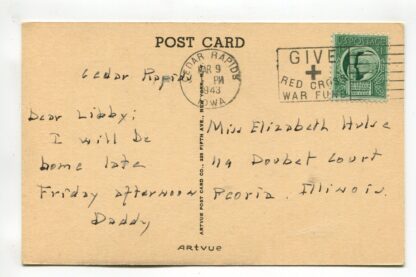 POST CARD
CEDAR RAPIDS
9
PM
1943
IOWA
GIVE
RED CROSS
WAR FUND
Cedar Rapids
Dear Libby;
I will be
home late
Friday afternoon
Daddy
Miss Elizabeth Hulse
119 Doubet Court
Peoria, Illinois.
ARTVUE POST CARD CO., 225 FIFTH AVE., NEW YORK
ARTVUE